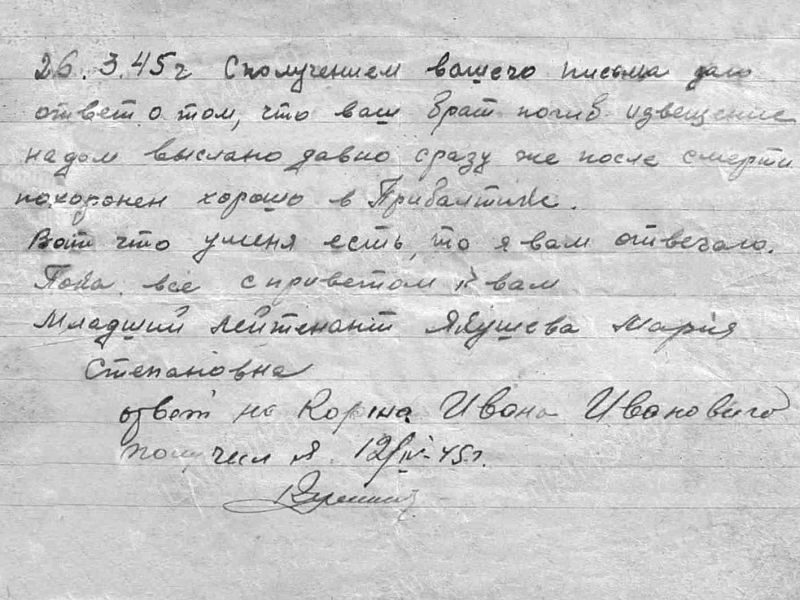 26.3.45г Сполучением вашего письма даю
ответ о том, что ваш брат погиб извещение
надом выслано давно сразу же после смерти
похоронен хорошо в Прибалтике.
Вот что уменя есть, то я вам отвечаю.
Пока все сприветом к вам
Младший лейтенант Якушева Мария
Степановна
ответ на Корина Ивана Ивановича
получил я 12/IV-45г.